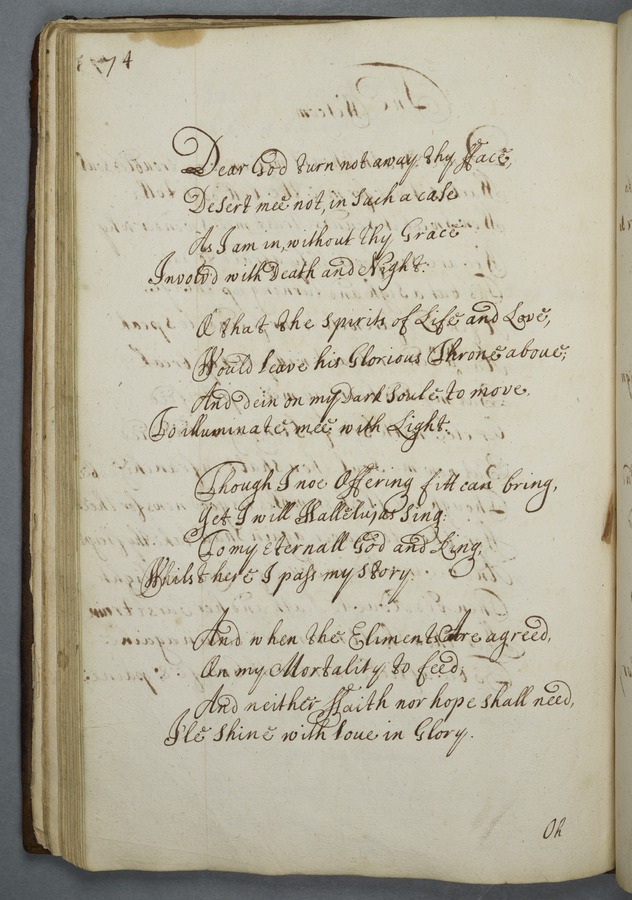 74
Dear God turn not away thy fface,
Desert mee not, in such a case
As I am in, without thy Grace
Involv'd with Death and Night:
O that the spirit of Life and Love,
Would leave his Glorious Throne above;
And dein on my Dark Soule to move
To illuminate mee with Light.
Though I noe Offering fitt can bring,
Yet I will Hallelujas sing:
To my eternall God and King,
Whilst here I pass my story.
And when the Eliments are agreed,
On my Mortality to feed;
And neither ffaith nor hope shall need,
I'le shine with loue in Glory.
Oh